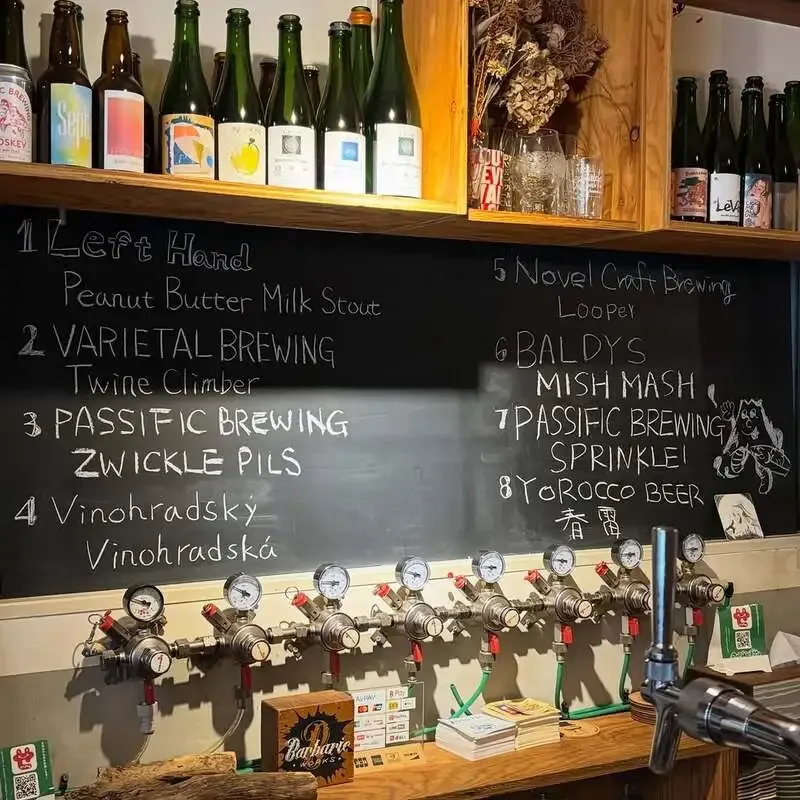 1 Left Hand
Peanut Butter Milk Stout
2 VARIETAL BREWING
Twine Climber
3 PASSIFIC BREWING
ZWICKLE PILS
4 Vinohradský
Vinohradská
5 Novel Craft Brewing
Looper
6 BALDYS
MISH MASH
7 PASSIFIC BREWING
SPRINKLE!
8 YOROCCO BEER
春雷
Barbaric
WORKS